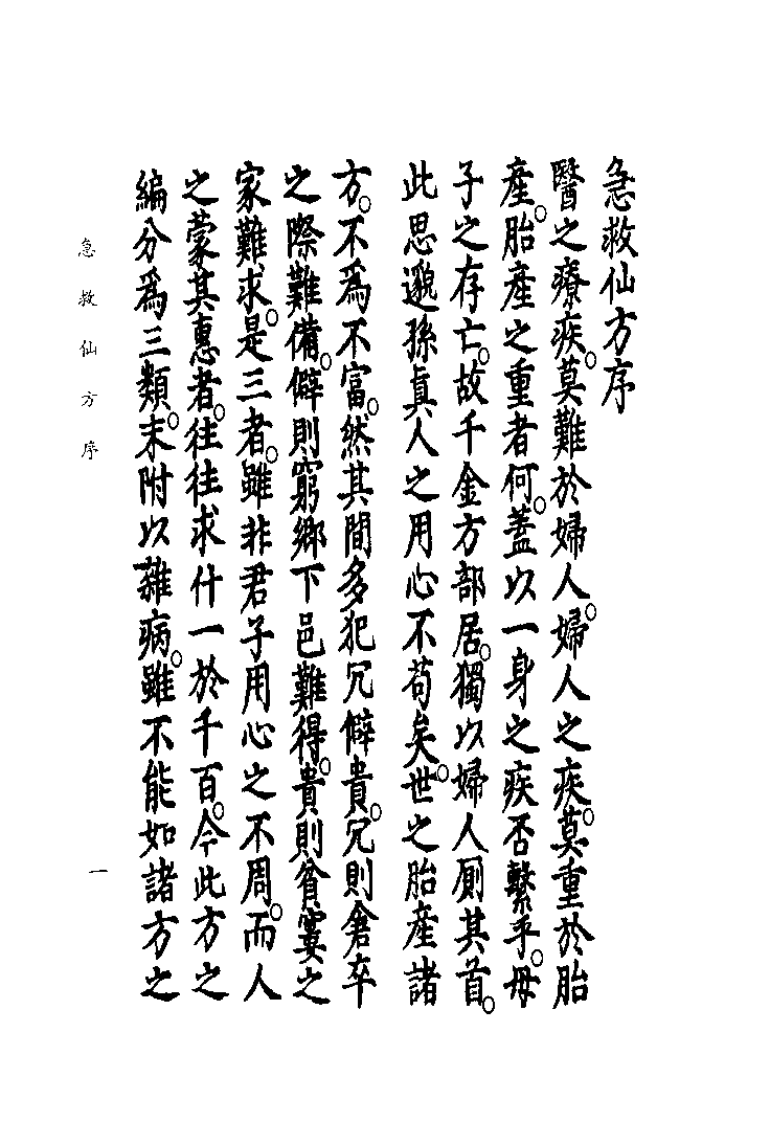 急救仙方序
醫之療疾。莫難於婦人。婦人之疾。莫重於胎
產。胎產之重者何。蓋以一身之疾否繫乎。母
子之存亡。故千金方部居。獨以婦人厠其首。
此思邈孫眞人之用心不苟矣。世之胎產諸
方。不爲不富。然其間多犯冗僻貴。冗則倉卒
之際難備。僻則窮鄉下邑難得。貴則貧窶之
家難求。是三者。雖非君子用心之不周。而人
之蒙其惠者。往往求什一於千百。今此方之
編分爲三類。末附以雜病。雖不能如諸方之
急救仙方序
一